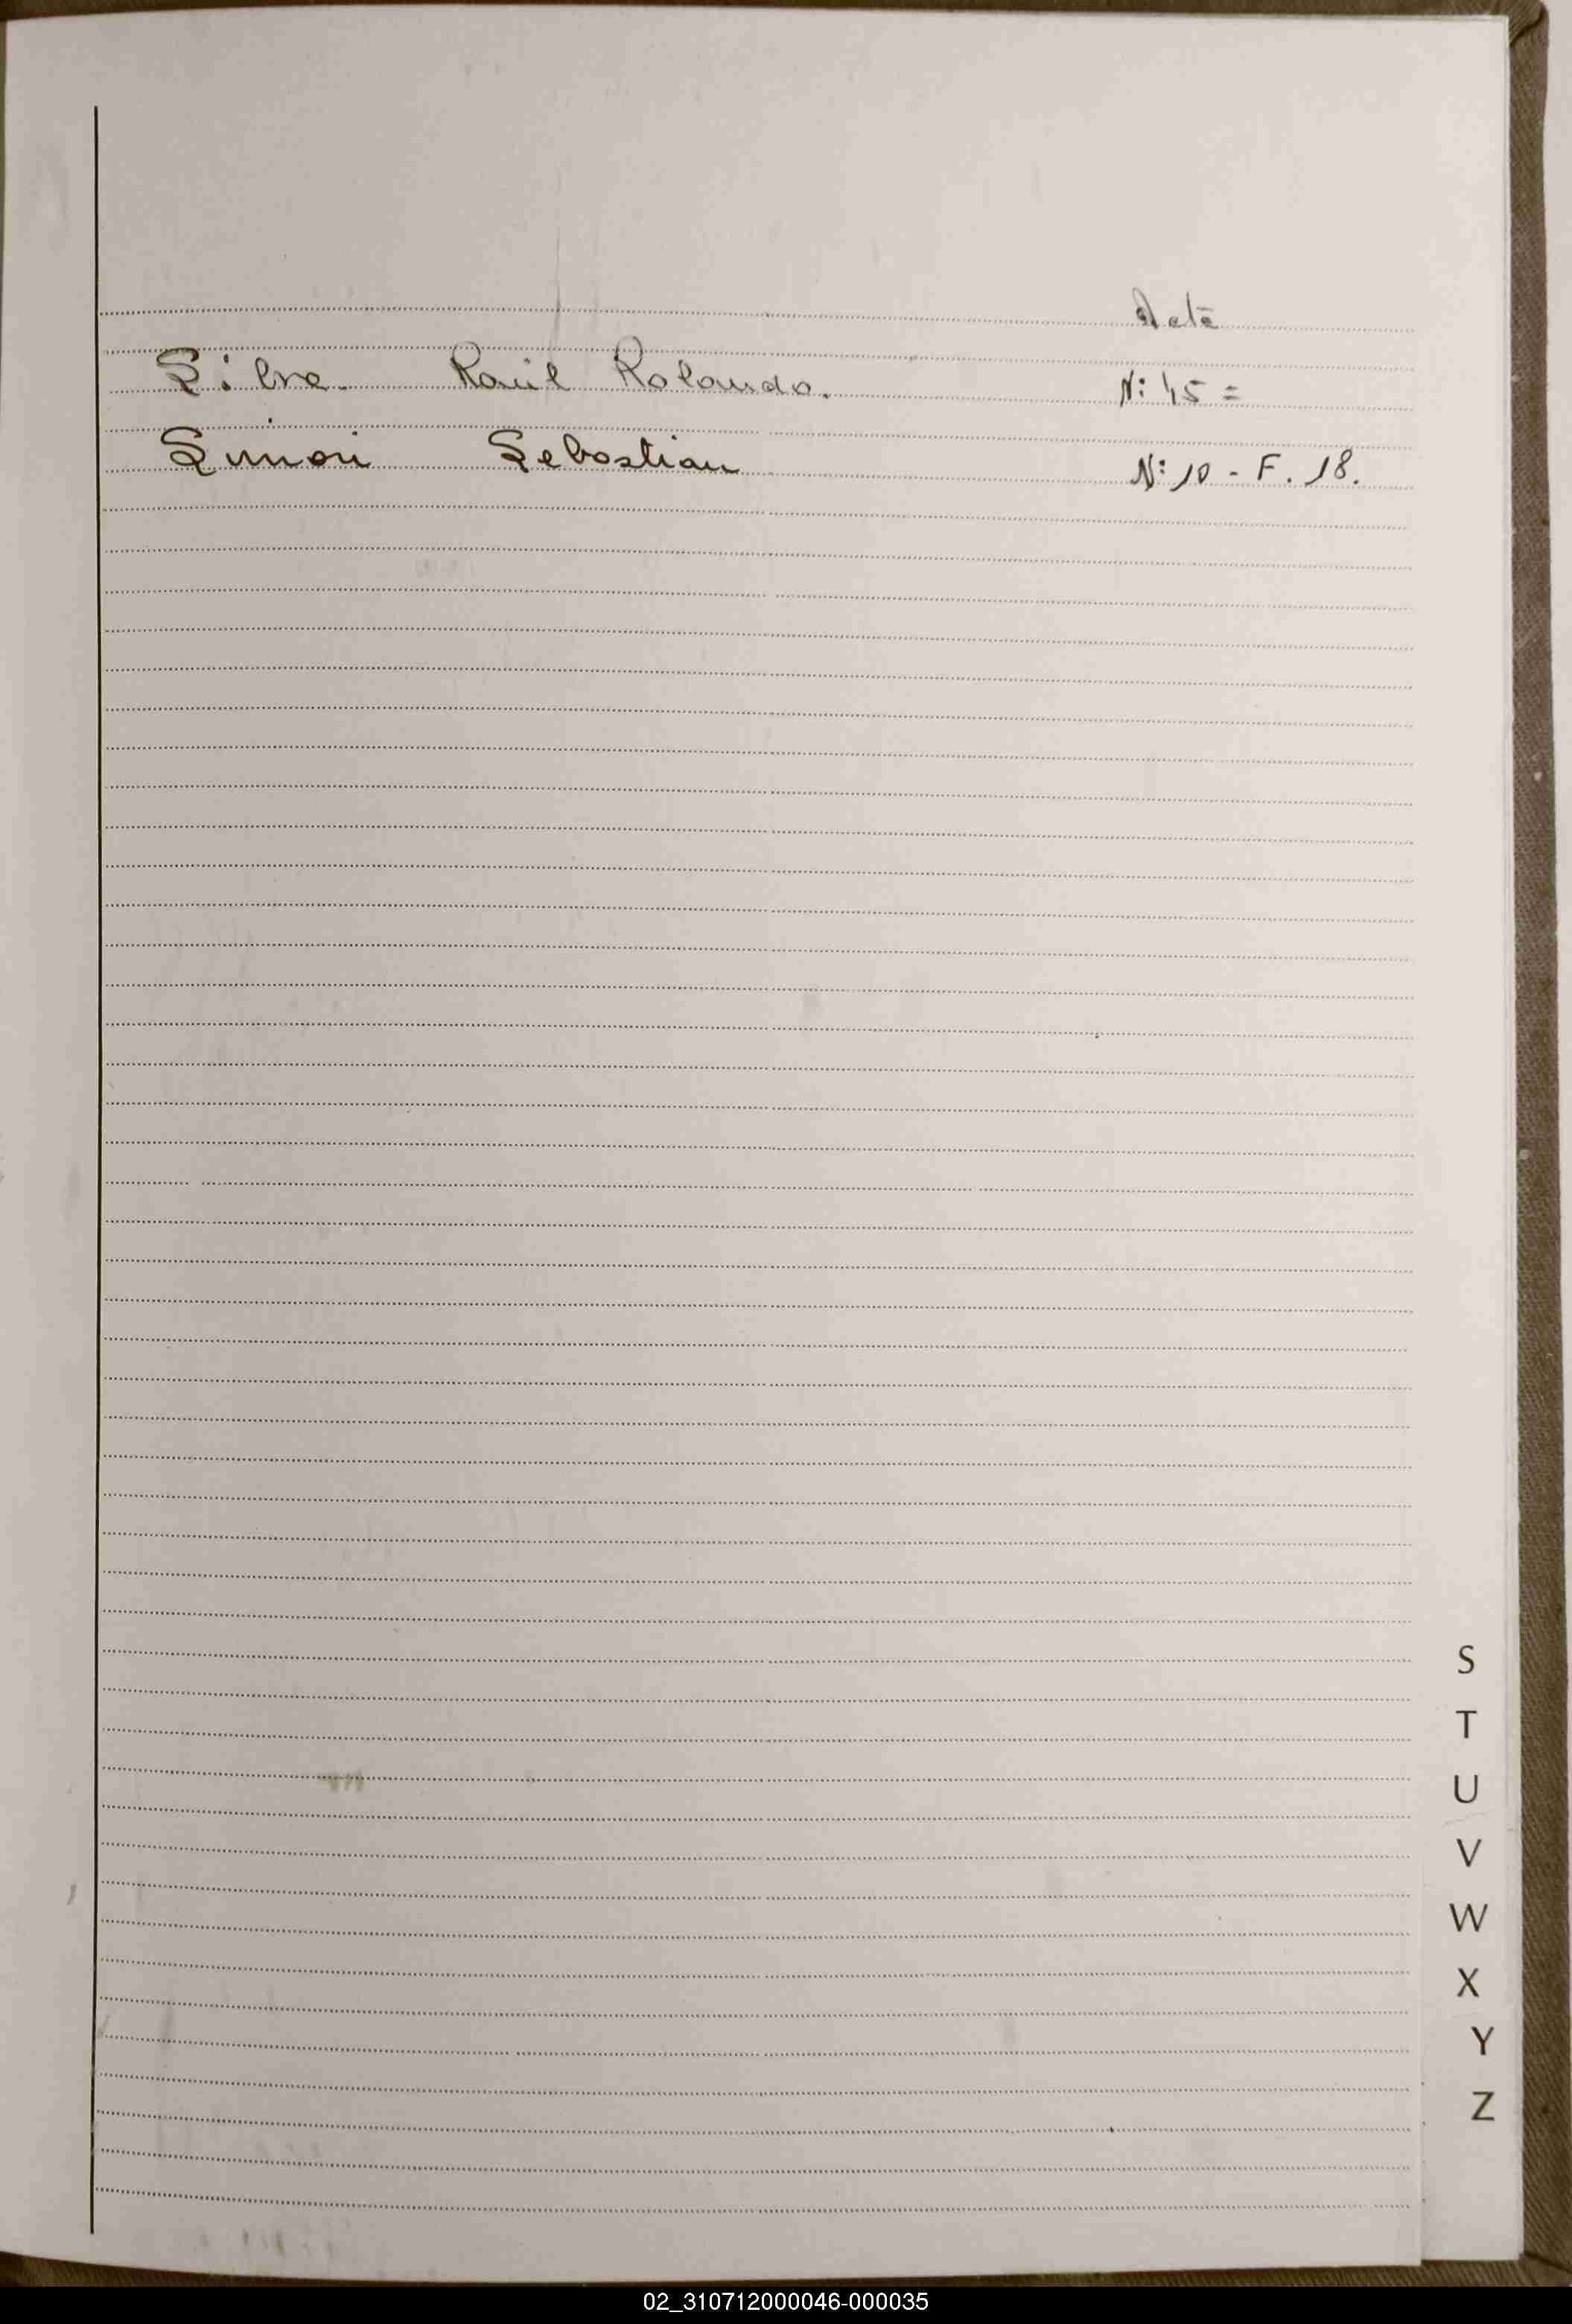 Acta
Silva. Raúl Rolando. Nº 45 =
Simón Sebastian Nº 10 - F. 18.
S
T
U
V
W
X
Y
Z
02_310712000046-000035